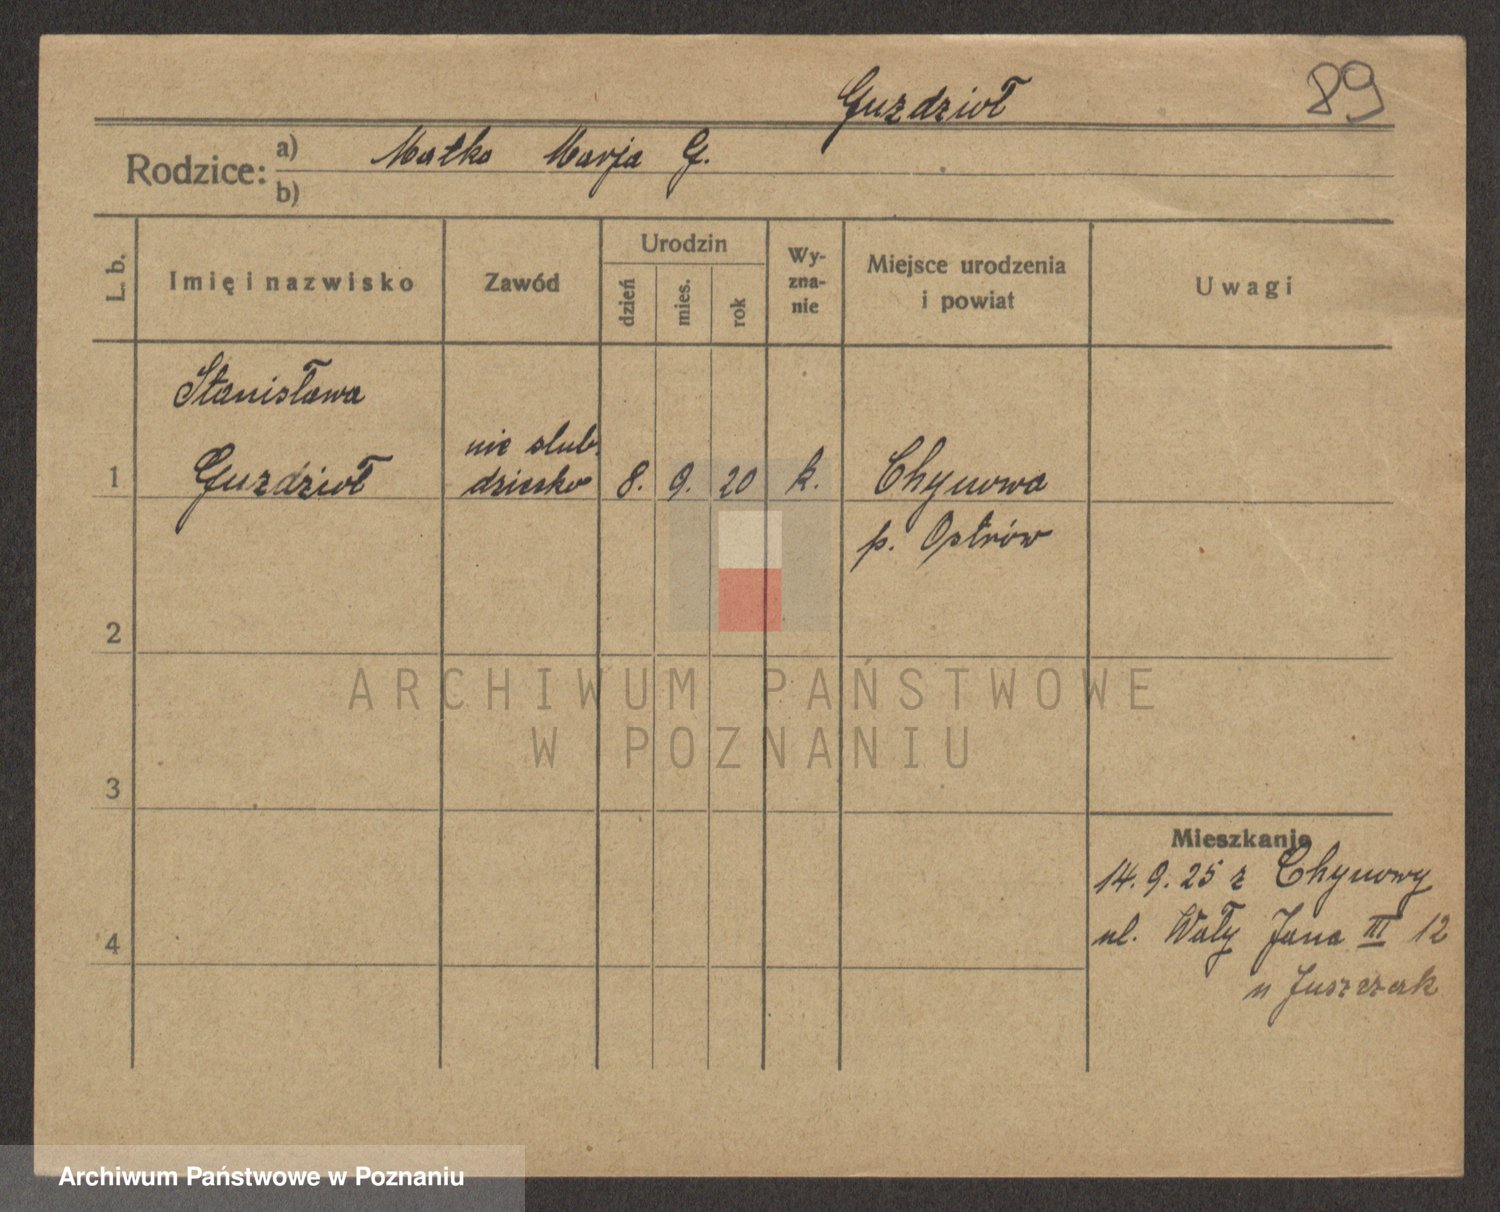 Guździoł
89
Rodzice: a) Matka Marja G.
b)
L. b.
Imię i nazwisko
Zawód
Urodzin
dzień
mies.
rok
Wy-
zna-
nie
Miejsce urodzenia
i powiat
Uwagi
Stanisława
nie slub.
1 Guzdzioł dziecko 8. 9. 20 k. Chynowa
p. Ostrów
2
ARCHIWUM PAŃSTWOWE
W POZNANIU
3
Mieszkanie
14. 9. 25 z Chynowy
4
ul. Wały Jana III 12
u Juszczak
Archiwum Państwowe w Poznaniu